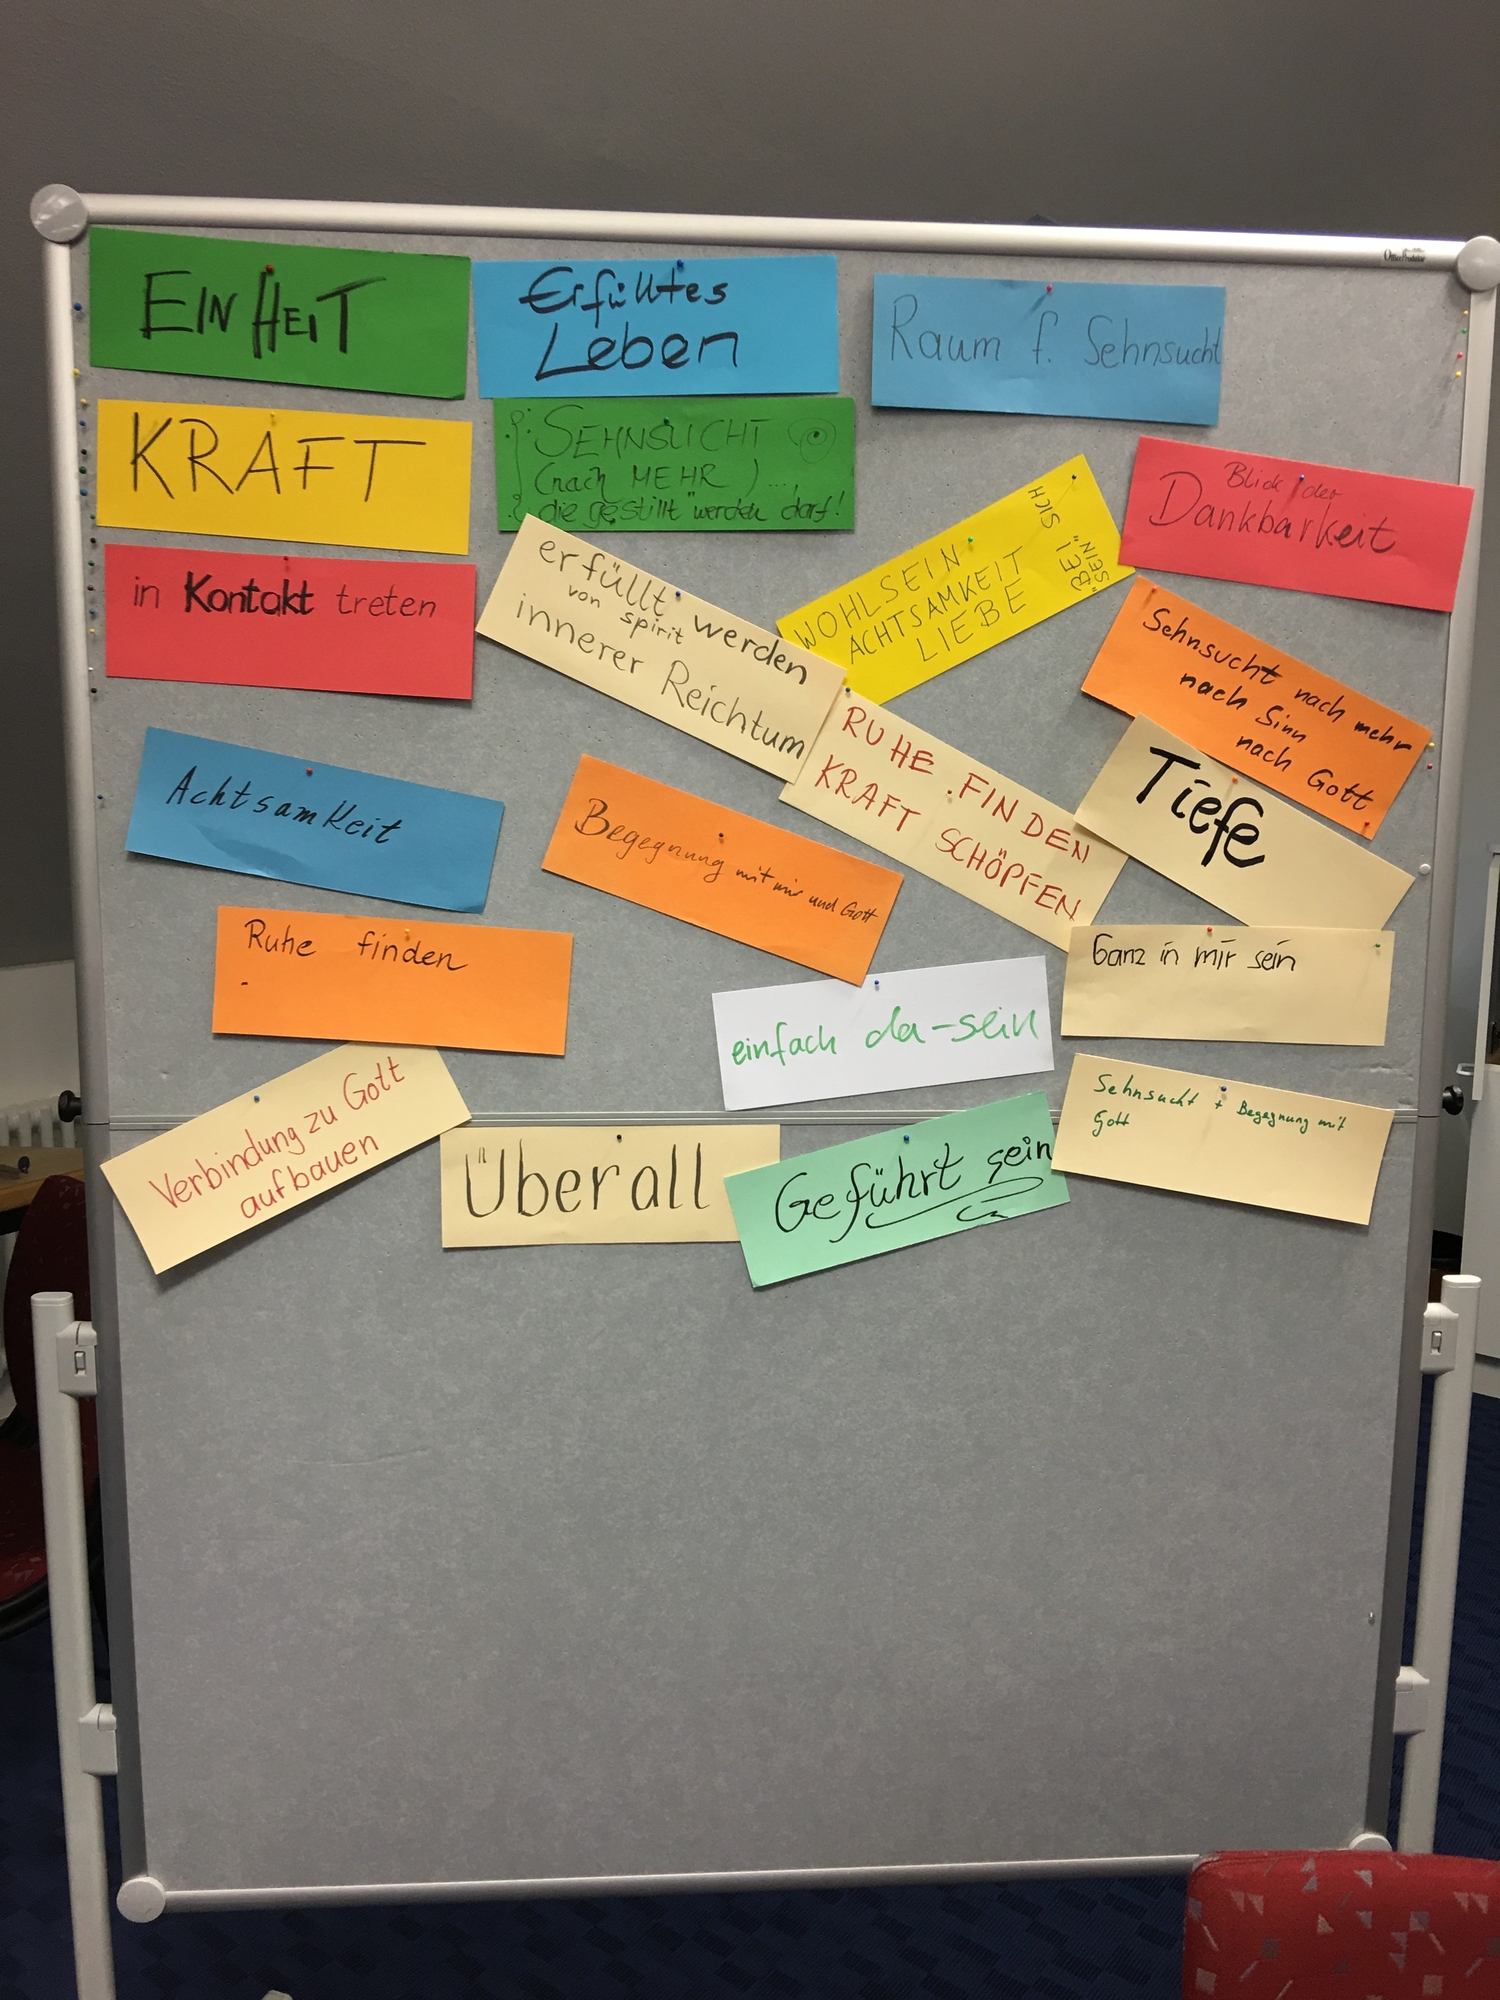 EINHEIT
Erfülltes
Leben
Raum f. Sehnsucht
KRAFT
SEHNSUCHT
(nach MEHR) ...
die gestillt" werden darf!
Blick der
Dankbarkeit
in Kontakt treten
erfüllt werden
von spirit
innerer Reichtum
WOHLSEIN
ACHTSAMKEIT
LIEBE
"BEI SICH
SEIN"
Sehnsucht nach mehr
nach Sinn
nach Gott
RUHE FINDEN
KRAFT SCHÖPFEN
Tiefe
Achtsamkeit
Begegnung mit mir und Gott
Ruhe finden
-
Ganz in mir sein
einfach da-sein
Verbindung zu Gott
aufbauen
Überall
Geführt sein
Sehnsucht + Begegnung mit
Gott